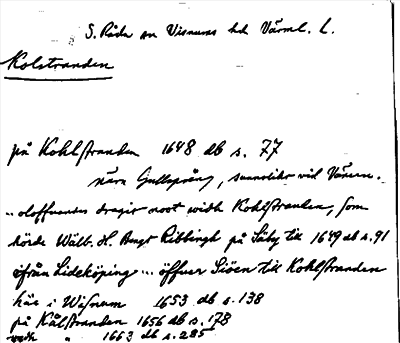 S. Råda sn Visnums hd Värml. L.
Kolstranden
på Kohlstranden 1648 db s. 77
nära Gullspång, sannolikt vid Vänern.
.. oloffuendes dragit noot widh Kohlstranden, som
hörde Wälb. H. Bengt Ribbingh på Säby till 1649 db s. 91
ifrån Lideköping ... öffuer Siöen till Kohlstranden
här i Wißnum 1653 db s. 138
på Kålstranden 1656 db s. 178
widh " 1663 db s. 285